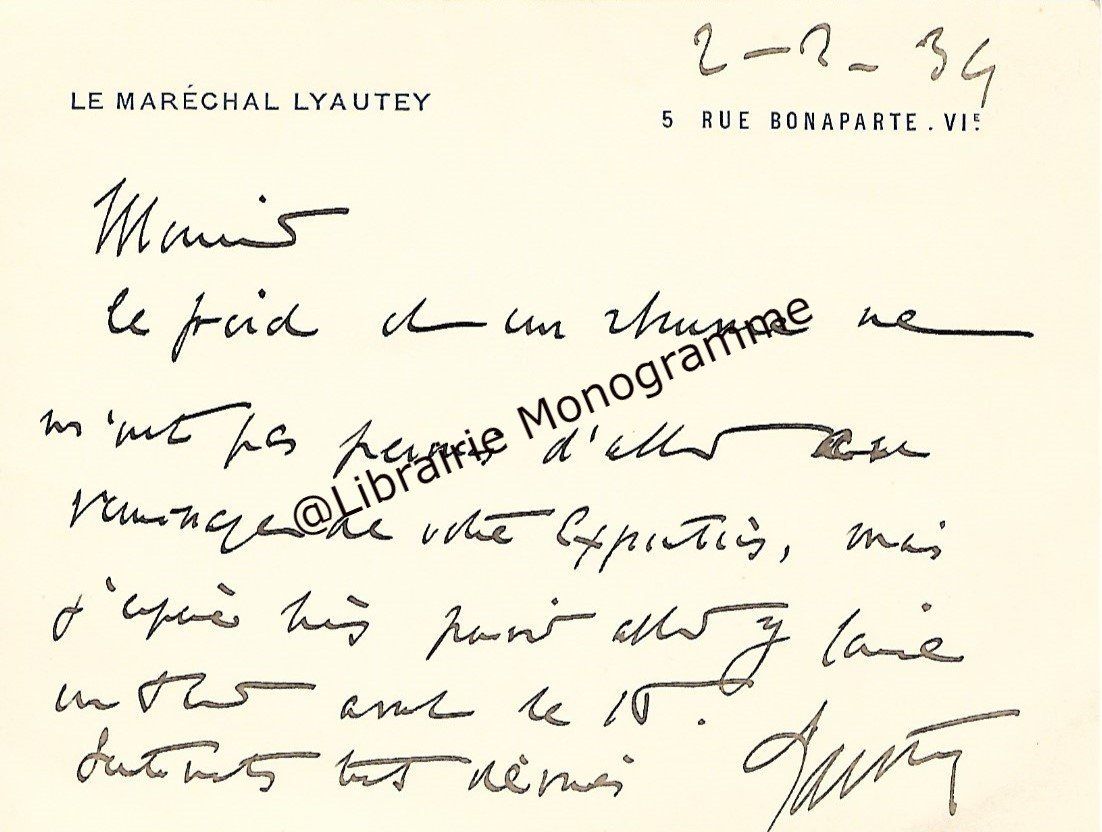 2-2-34
LE MARÉCHAL LYAUTEY
5 RUE BONAPARTE. VIE.
Monsieur
le froid et un rhume ne
m'ont pas permis d'aller au
vernissage de votre Exposition, mais
j'espère très pouvoir aller y faire
un tour avant le 15.
Sentiments très dévoués
Lyautey
@Librairie Monogramme